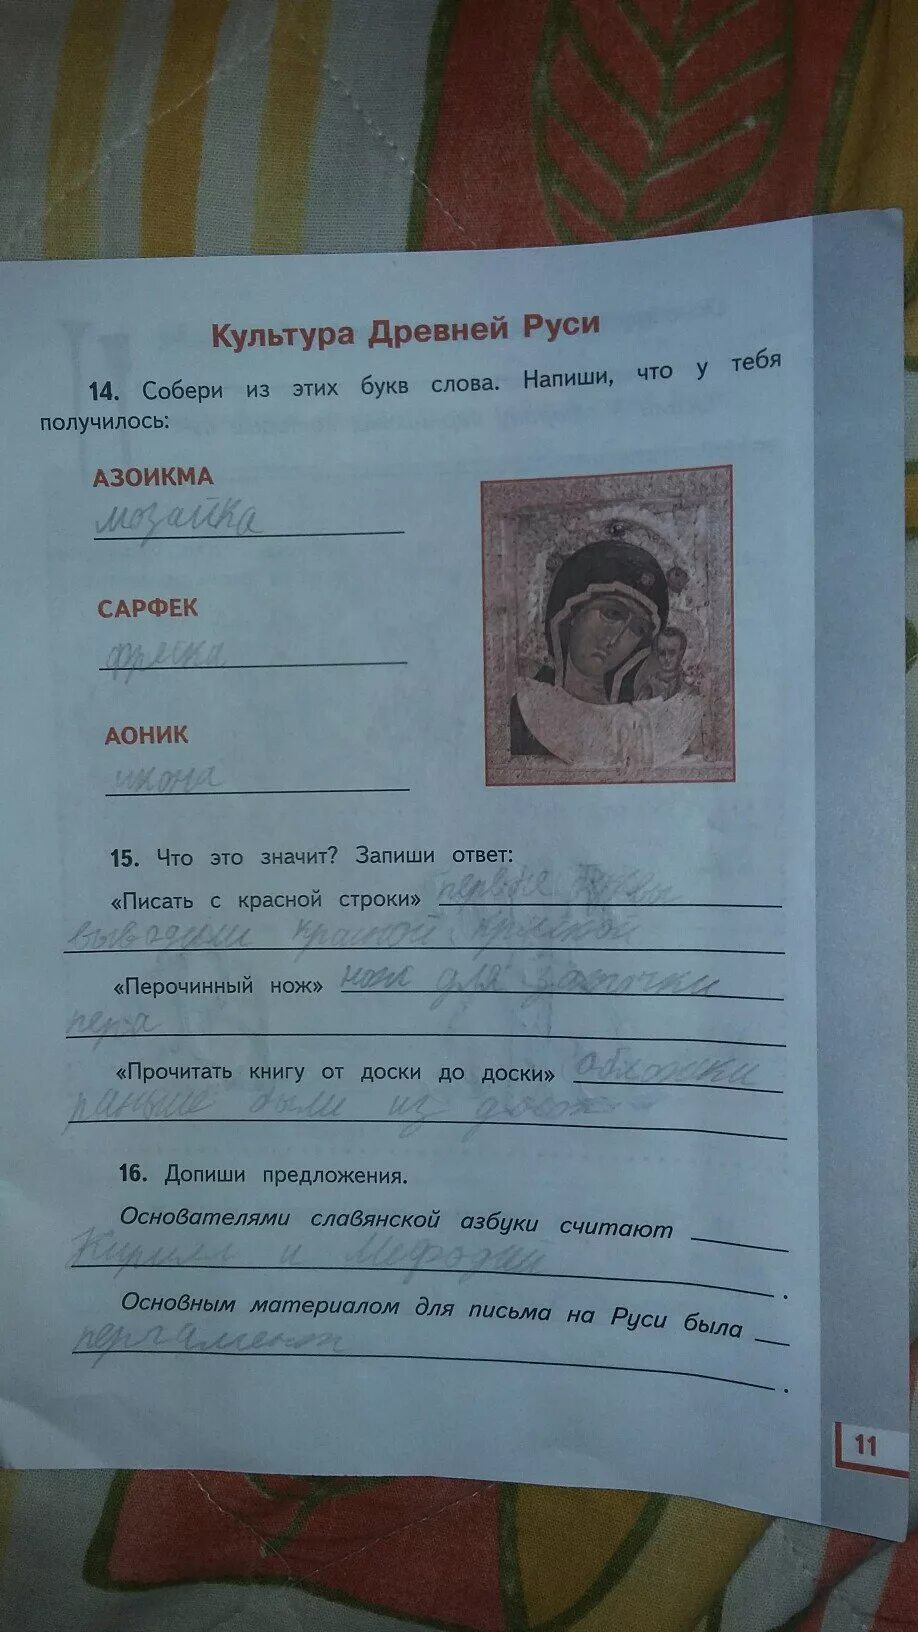 Культура Древней Руси
14. Собери из этих букв слова. Напиши, что у тебя
получилось:
АЗОИКМА
мозаика
САРФЕК
АОНИК
икона
15. Что это значит? Запиши ответ:
«Писать с красной строки» первые буквы
выводили красной краской
«Перочинный нож» нож для заточки
пера
«Прочитать книгу от доски до доски» обложки
раньше были из досок
16. Допиши предложения.
Основателями славянской азбуки считают
Кирилл и Мефодий
Основным материалом для письма на Руси была
пергамент
11